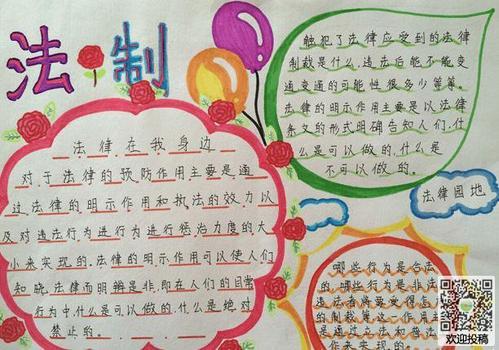 法制
法律在我身边
对于法律的预防作用主要是通
过法律的明示作用和执法的效力以
及对违法行为进行进行惩治力度的大
小来实现的.法律的明示作用可以使人们
知晓法律而明辨是非,即在人们的日常
行为中.什么是可以做.什么是绝对
禁止的。
触犯了法律应受到的法律
制裁是什么.违法后能不能变
通变通的可能性很多少等等。
法律的明示作用主要是以法律
条文的形式明确告知人们.什
么是可以做的,什么是
不可以做的。
法律园地
哪些行为是合法
的.哪些行为是非法
违法者将要受得怎
的制裁等.这一作用主
是通过立法和普法
作来实现的。
欢迎投稿